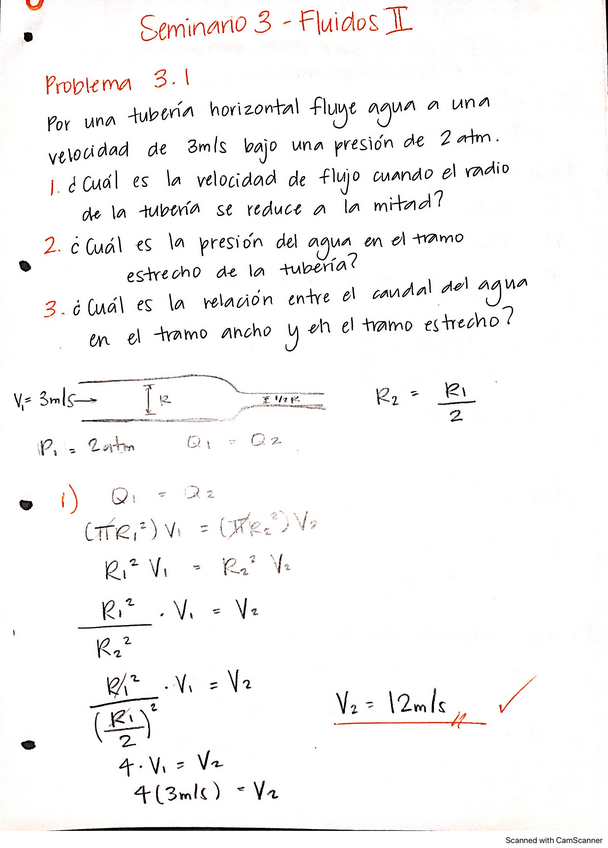 Seminario 3 - Fluidos II
Problema 3.1
Por una tubería horizontal fluye agua a una
velocidad de 3m/s bajo una presión de 2 atm.
1. ¿Cuál es la velocidad de flujo cuando el radio
de la tubería se reduce a la mitad?
2. ¿Cuál es la presión del agua en el tramo
estrecho de la tubería?
3. ¿Cuál es la relación entre el caudal del agua
en el tramo ancho y en el tramo estrecho?
V₁= 3m/s → R 1/2 R R₂ = R₁/2
P₁ = 2atm Q₁ = Q₂
1) Q₁ = Q₂
(πR₁²) V₁ = (πR₂²) V₂
R₁² V₁ = R₂² V₂
R₁²/R₂² · V₁ = V₂
R₁²/(R₁/2)² · V₁ = V₂
V₂ = 12m/s ✓
4 · V₁ = V₂
4(3m/s) = V₂
Scanned with CamScanner